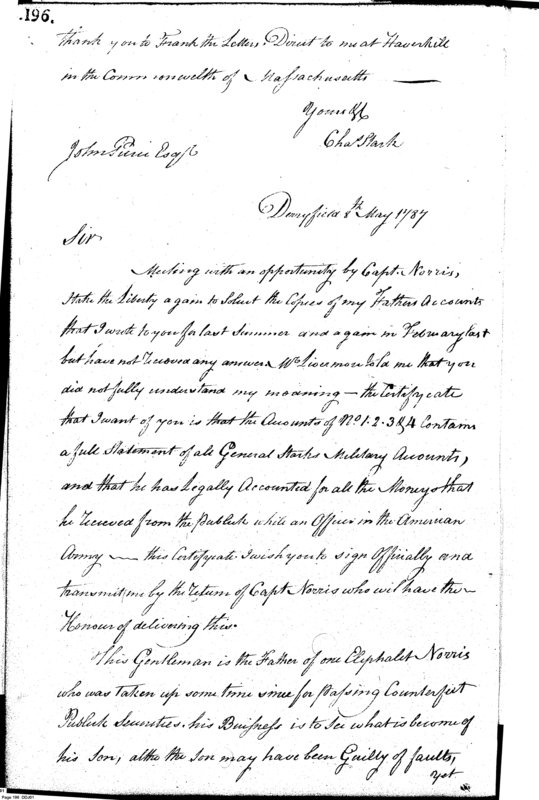 196.
thank you to Frank the Letters. Direct to me at Haverhill
in the Commonwelth of Massachusetts —
Yours &c
Chas Stark
John Pierce Esqr
Derryfield 8th May 1787
Sir
Meeting with an opportunity by Capt. Norris,
I take the Liberty again to Solicit the Copies of my Fathers Accounts
that I wrote to you for last Summer and again in February last
but have not Receved any answer. Mr. Livermore told me that you
did not fully understand my meaning — the Certifycate
that I want of you is that the Accounts of No. 1. 2. 3 & 4 Contain
a full Statement of all General Starks Military Accounts,
and that he has Legally Accounted for all the Moneys that
he Receved from the Publick while an Officer in the American
Army — this Certifycate I wish you to sign Officially and
transmit me by the Return of Capt Norris who will have the
Honour of delivering this.
This Gentleman is the Father of one Eliphalet Norris
who was taken up some time since for Passing Counterfeit
Publick Securities. his Buisness is to See what is become of
his Son, altho the Son may have been Guilty of faults,
yet
Page 196